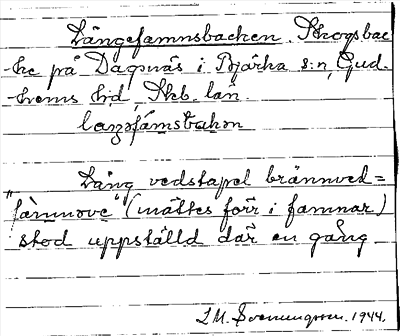 Långefamnsbacken. Skogsbac
-ke på Dagsnäs i Bjärka s:n, Gud.
-hems h:d, Skb. län
laŋofámsbakən
Lång vedstapel brännved=
"fàmnove" (mättes förr i famnar)
stod uppställd där en gång
L.M. Svenungsson. 1944.